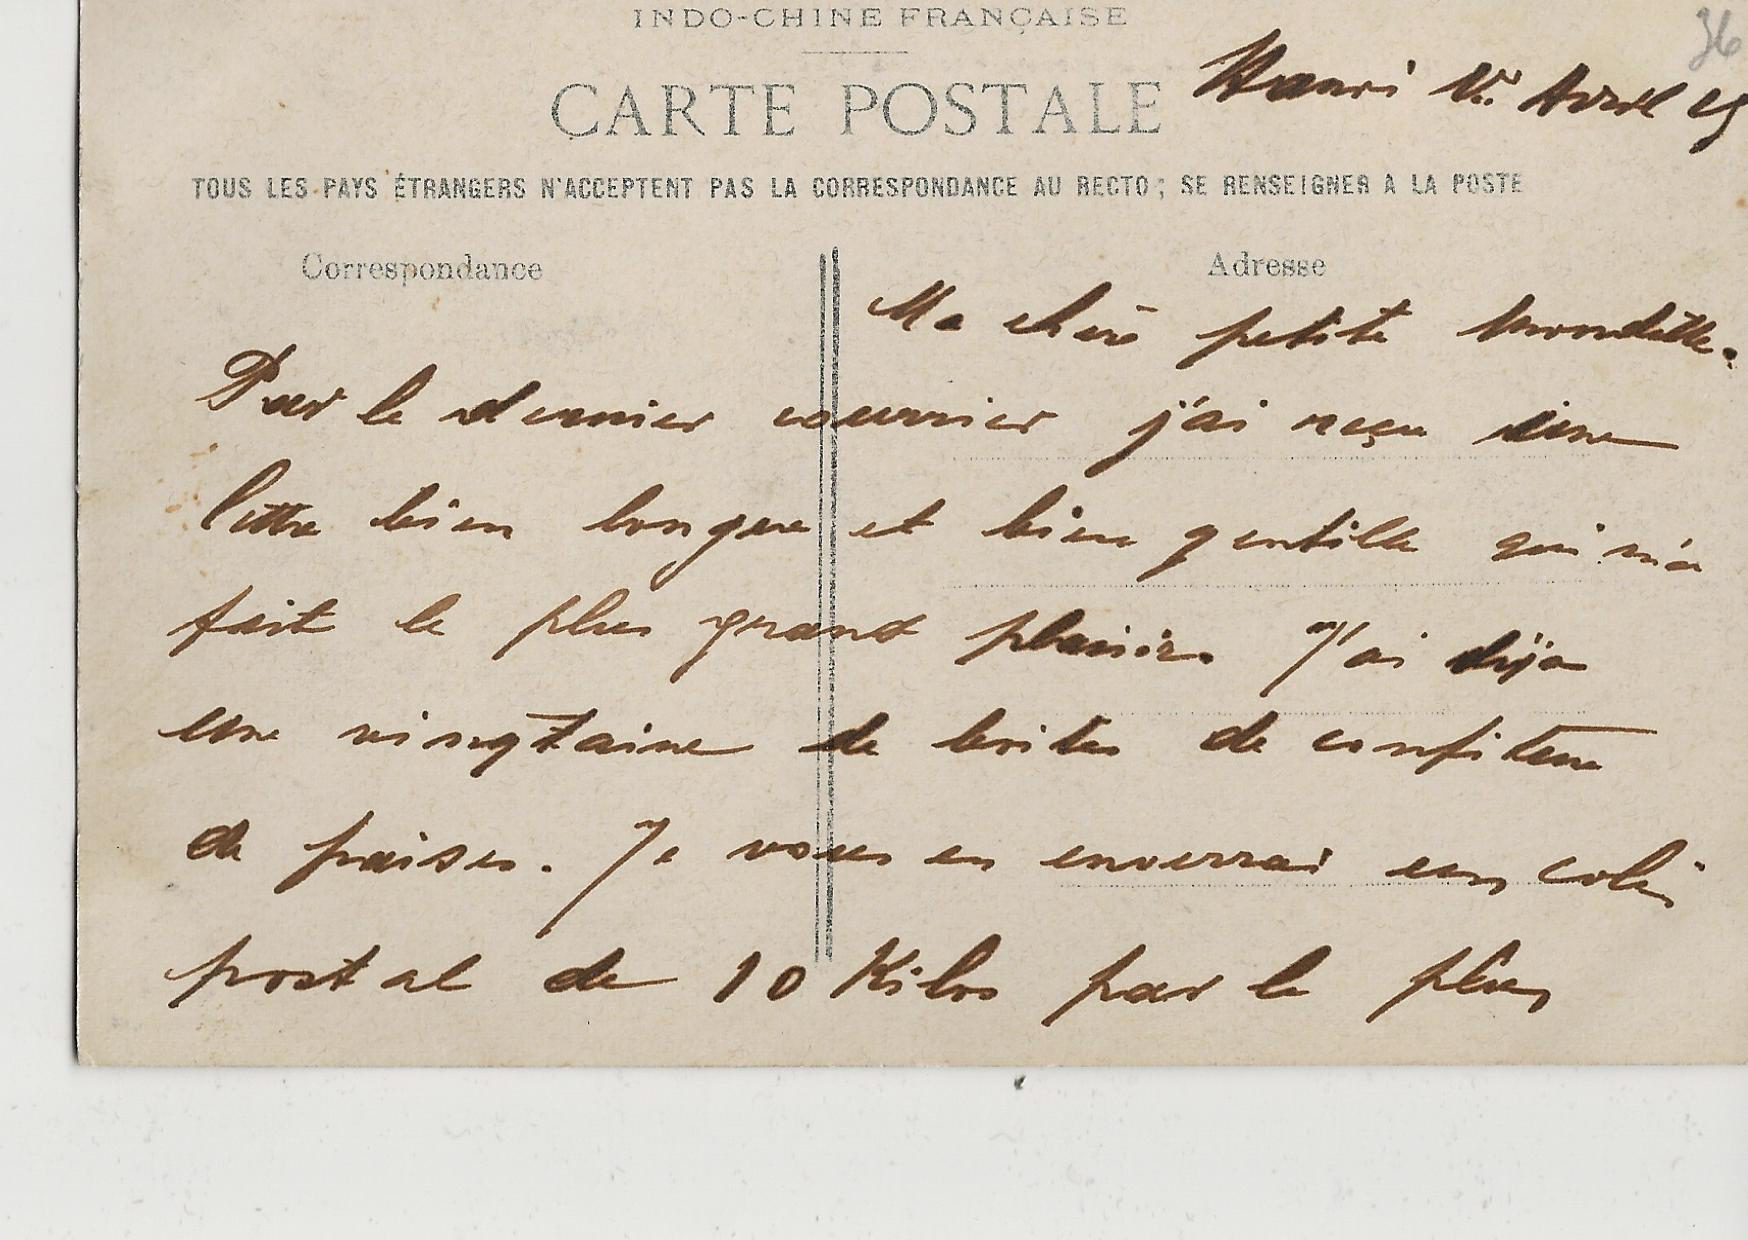 INDO-CHINE FRANÇAISE
36
CARTE POSTALE
Hanoi 1er Avril
TOUS LES PAYS ÉTRANGERS N'ACCEPTENT PAS LA CORRESPONDANCE AU RECTO; SE RENSEIGNER A LA POSTE
Correspondance
Adresse
Ma chère petite
Par le dernier courrier j'ai reçu une
lettre bien longue et bien gentille qui m'a
fait le plus grand plaisir. J'ai déjà
une vingtaine de boites de confiture
de fraises. Je vous en enverrai un colis
postal de 10 Kilos par le plus